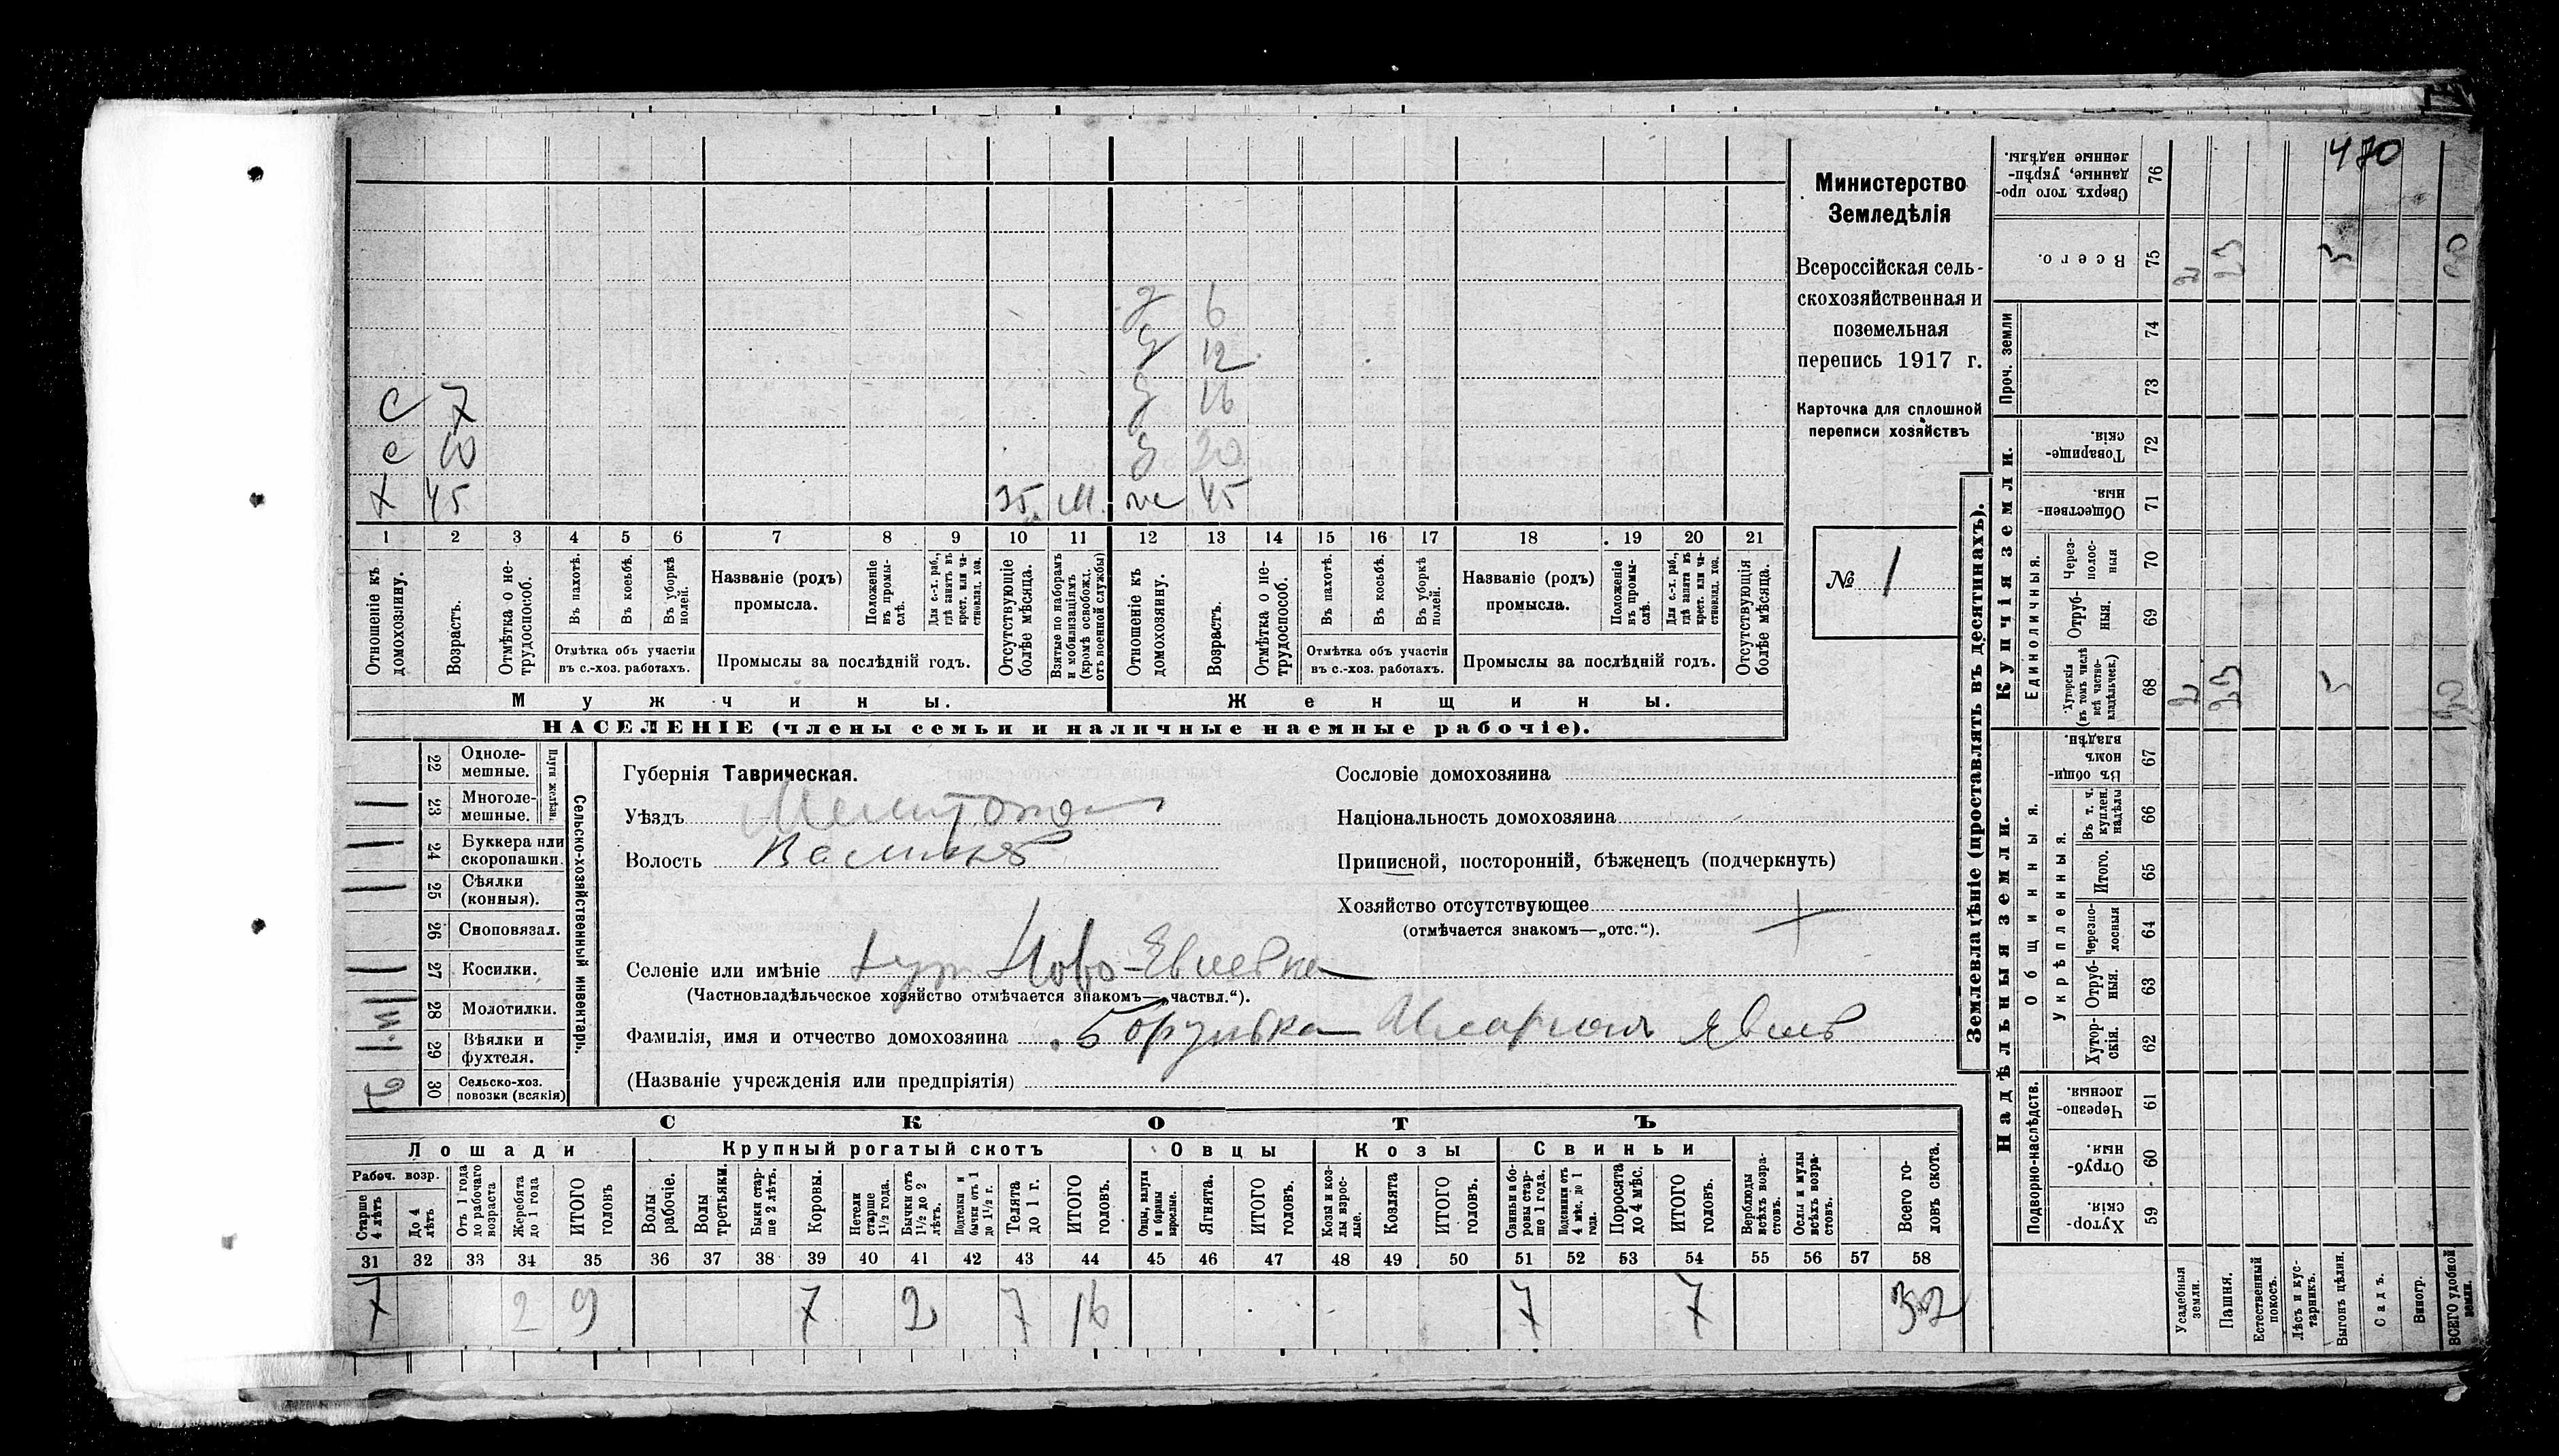 470
Министерство
Земледѣлія
Всероссійская сель-
скохозяйственная и
поземельная
перепись 1917 г.
Карточка для сплошной
переписи хозяйствъ
№ 1
6
12
с 7 16
с 10
х 45 м. 45
1 2 3 4 5 6 7 8 9 10 11 12 13 14 15 16 17 18 19 20 21
Отношеніе къ домохозяину.
Возрастъ.
Отмѣтка о не-трудоспособ.
Въ пахотѣ.
Въ косьбѣ.
Въ уборкѣ полей.
Отмѣтка объ участіи въ с.-хоз. работахъ.
Названіе (родъ) промысла.
Положеніе въ промы-слѣ.
Для с.-х. раб., гдѣ занятъ въ крест. или ча-стновлад. хоз.
Промыслы за послѣдній годъ.
Отсутствующіе болѣе мѣсяца.
Взятые по наборамъ и мобилизаціямъ (кромѣ освобожд. отъ военной службы)
Отношеніе къ домохозяину.
Возрастъ.
Отмѣтка о не-трудоспособ.
Въ пахотѣ.
Въ косьбѣ.
Въ уборкѣ полей.
Отмѣтка объ участіи въ с.-хоз. работахъ.
Названіе (родъ) промысла.
Положеніе въ промы-слѣ.
Для с.-х. раб., гдѣ занята въ крест. или ча-стновлад. хоз.
Промыслы за послѣдній годъ.
Отсутствующія болѣе мѣсяца.
Мужчины.
Женщины.
НАСЕЛЕНІЕ (члены семьи и наличные наемные рабочіе).
22 Одноле-мешные.
23 Многоле-мешные.
Плуги желѣзн.
24 Буккера или скоропашки.
25 Сѣялки (конныя).
26 Сноповязал.
27 Косилки.
28 Молотилки.
29 Вѣялки и фухтеля.
30 Сельско-хоз. повозки (всякія)
Сельско-хозяйственный инвентарь.
Губернія Таврическая.
Уѣздъ
Волость
Сословіе домохозяина
Національность домохозяина
Приписной, посторонній, бѣженецъ (подчеркнуть)
Хозяйство отсутствующее
(отмѣчается знакомъ—„отс.“).
Селеніе или имѣніе хут Ново-Евлевка
(Частновладѣльческое хозяйство отмѣчается знакомъ—„частвл.“).
Фамилія, имя и отчество домохозяина
(Названіе учрежденія или предпріятія)
СКОТЪ
Лошади
Крупный рогатый скотъ
Овцы
Козы
Свиньи
Рабоч. возр.
Старше 4 лѣтъ
До 4 лѣтъ
Отъ 1 года до рабочаго возраста
Жеребята до 1 года
ИТОГО головъ
Волы рабочіе.
Волы третьяки.
Быки стар-ше 2 лѣтъ.
Коровы.
Нетели старше 1½ года.
Бычки отъ 1½ до 2 лѣтъ.
Подтелки и бычки отъ 1 до 1½ г.
Телята до 1 г.
ИТОГО головъ.
Овцы, валухи и бараны взрослые.
Ягнята.
ИТОГО головъ.
Козы и коз-лы взрос-лые.
Козлята
ИТОГО головъ.
Свиньи и бо-ровы стар-ше 1 года.
Подсвинки отъ 4 мѣс. до 1 года.
Поросята до 4 мѣс.
ИТОГО головъ.
Верблюды всѣхъ возра-стовъ.
Ослы и мулы всѣхъ возра-стовъ.
Всего го-ловъ скота.
31 32 33 34 35 36 37 38 39 40 41 42 43 44 45 46 47 48 49 50 51 52 53 54 55 56 57 58
7 2 9 7 2 7 16 7 7 32
Землевладѣніе (проставлять въ десятинахъ).
Купчія земли.
Надѣльныя земли.
Сверхъ того про-данные, укрѣп-ленные надѣлы. 76
Всего. 75
Проч. земли
74
73
Товарище-скія. 72
Обществен-ныя. 71
Единоличныя.
Через-полос-ныя 70
Отруб-ныя. 69
Хуторскія (въ томъ числѣ всѣ частно-владѣльческ.) 68
Общинныя.
Въ общи-нномъ владѣн. 67
Укрѣпленныя.
Въ т. ч. куплен. надѣлы 66
Итого. 65
Черезпо-лосныя 64
Отруб-ныя. 63
Хутор-скія. 62
Подворно-наслѣдств.
Черезпо-лосныя. 61
Отруб-ныя. 60
Хутор-скія. 59
Усадебныя земли.
Пашня.
Естественный покосъ.
Лѣсъ и кус-тарникъ.
Выгонъ цѣлин.
Садъ.
Виногр.
ВСЕГО удобной земли.